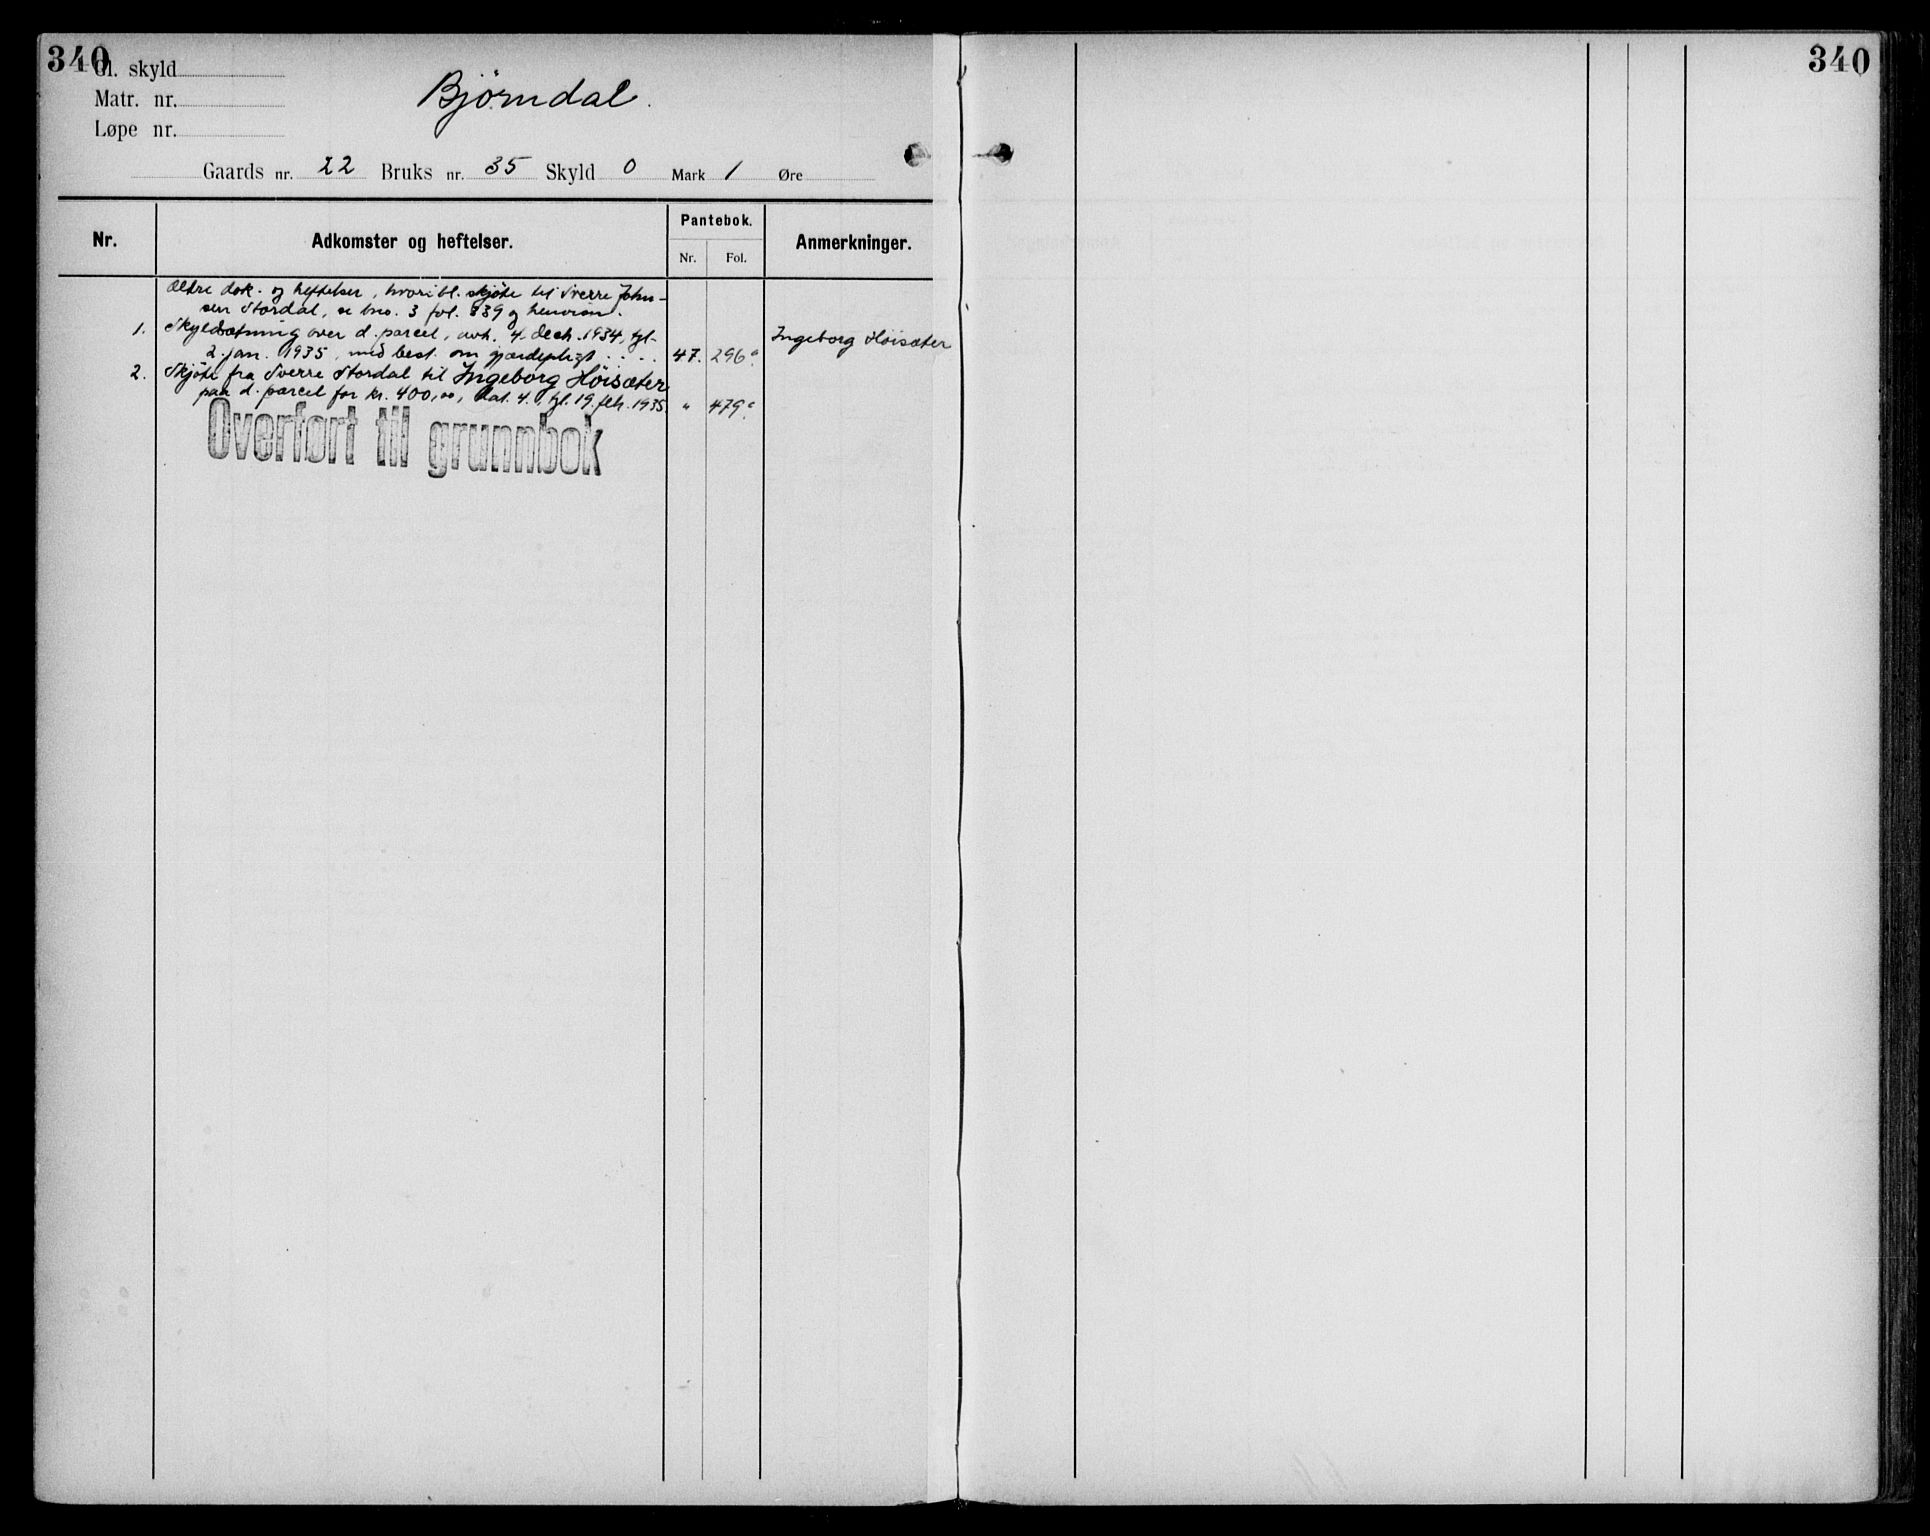 340
Gl. skyld
Matr. nr.
Løpe nr.
Bjørndal.
Gaards nr. 22 Bruks nr. 35 Skyld 0 Mark 1 Øre
Nr.
Adkomster og heftelser.
Pantebok.
Nr. Fol.
Anmerkninger.
Ældre dok. og heftelser, hvoribl. skjøte til Sverre John-
sen Stordal, se bno. 3 fol. 339 og henvisn.
1. Skyldsætning over d. parcel, avh. 4. decb. 1934, tgl.
2. jan. 1935, med best. om gjærdepligt . . . . 47. 296a.
Ingeborg Høisæter
2. Skjøte fra Sverre Stordal til Ingeborg Høisæter
paa d. parcel for kr. 400,00, dat. 4., tgl. 19. feb. 1935. " 479a.
Overført til grunnbok
340